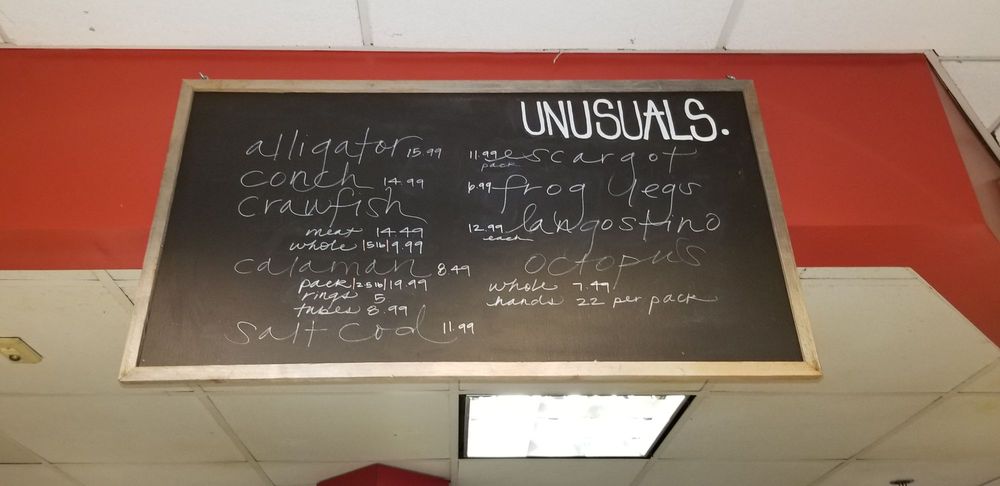 UNUSUALS.
alligator 15.99
conch 14.99
crawfish
meat 14.49
whole 5lb 9.99
calamari 8.49
pack 2.5lb 19.99
rings 5
tubes 8.99
salt cod 11.99
11.99 escargot
pack
6.99 frog legs
12.99 langostino
each
octopus
whole 7.49
hands 22 per pack